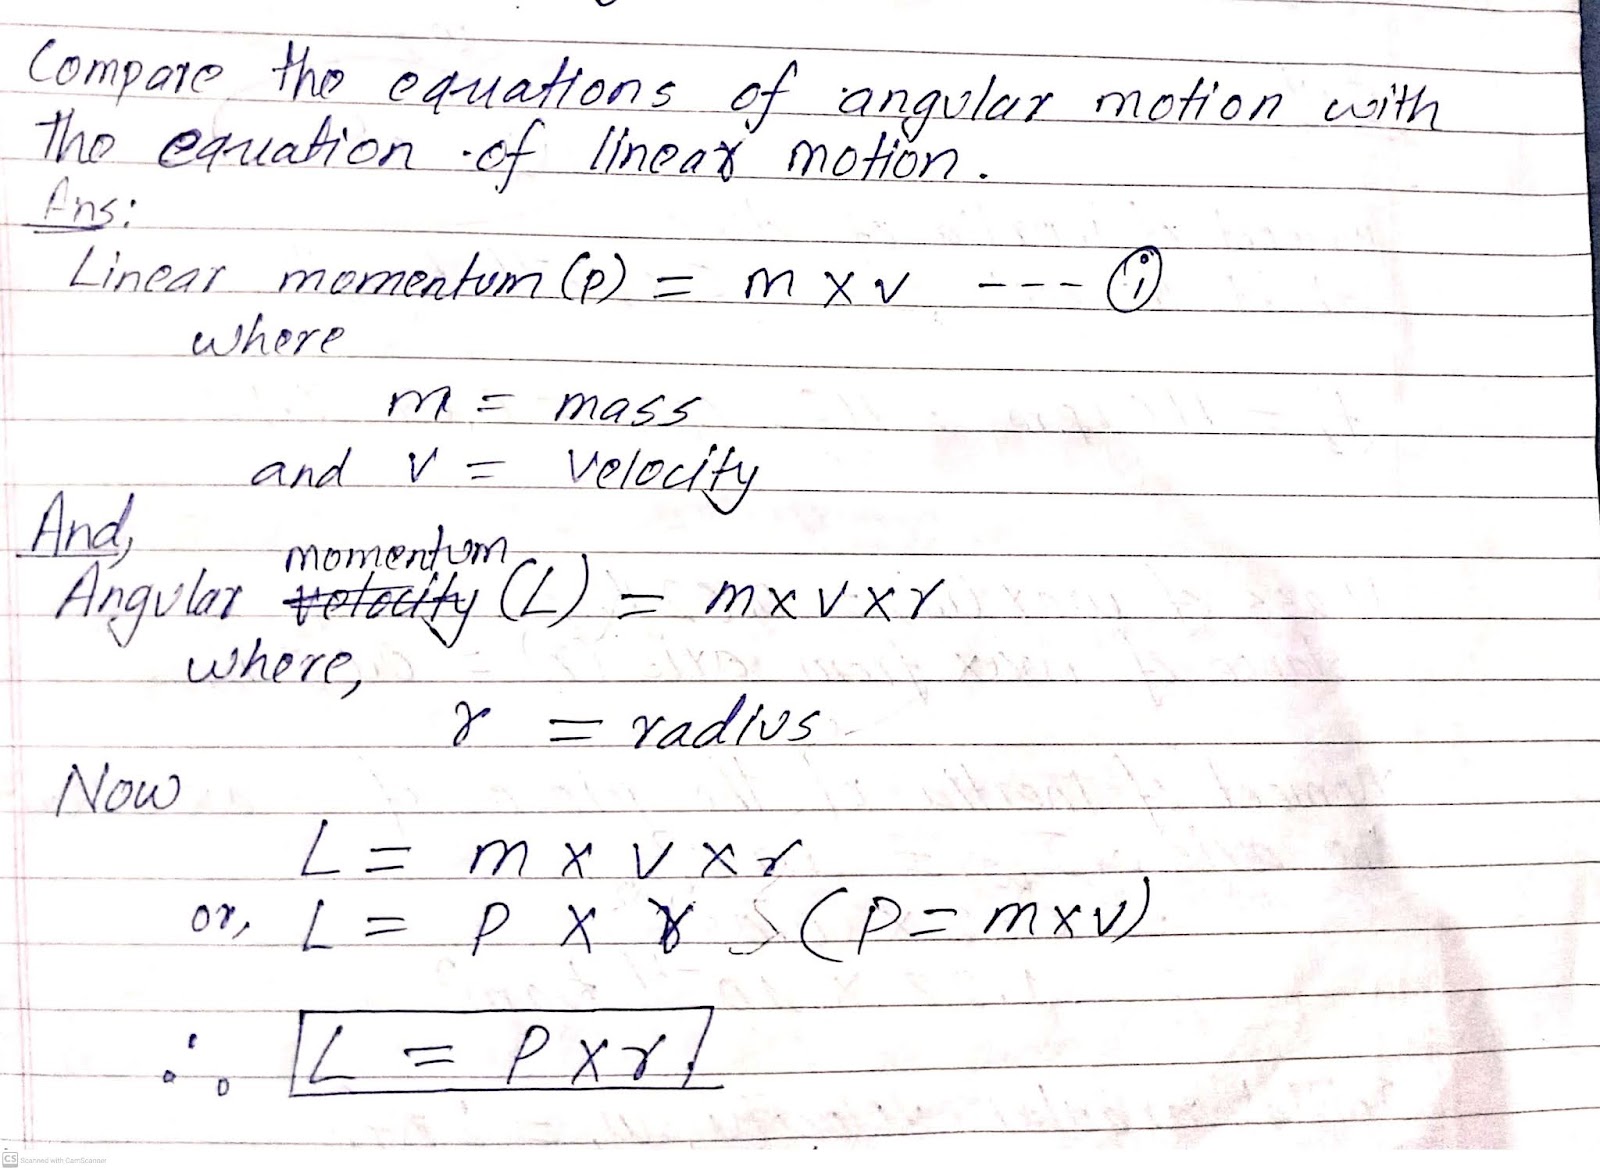 Compare the equations of angular motion with
the equation of linear motion.
Ans:
Linear momentum (P) = m x v --- (i)
where
m = mass
and v = velocity
And,
momentum
Angular velocity (L) = m x v x r
where,
r = radius
Now
L = m x v x r
or, L = P x r (P = m x v)
∴ L = P x r
CS Scanned with CamScanner